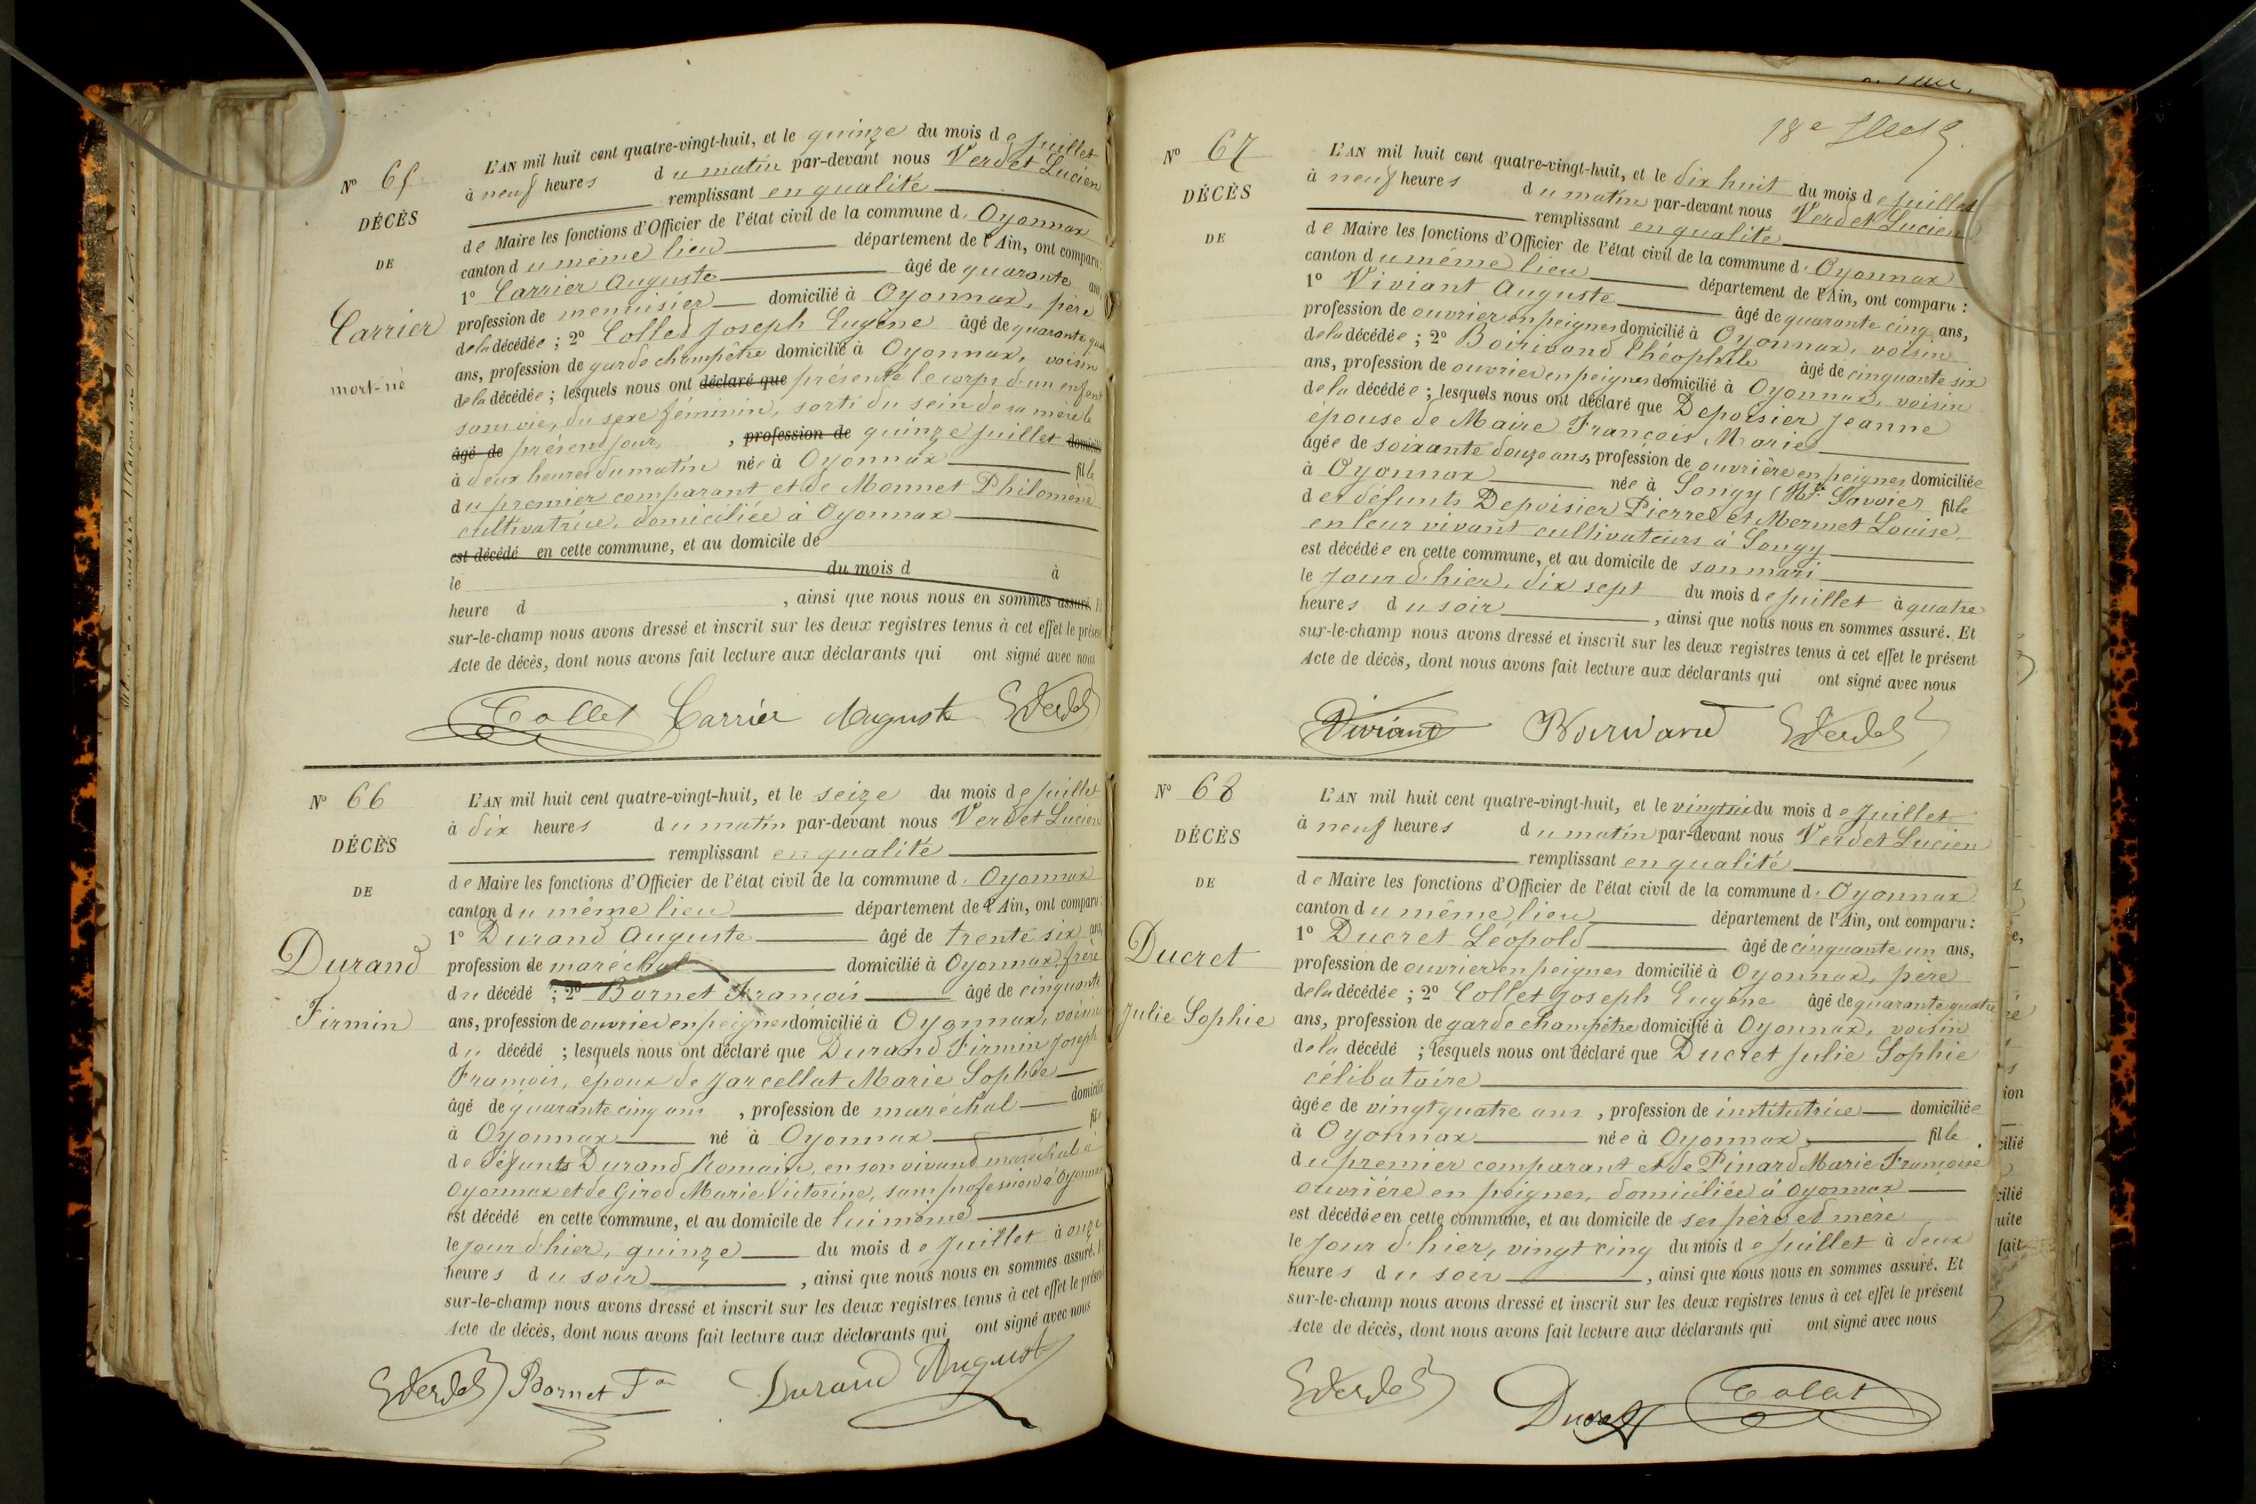 N° 65
DÉCÈS
DE
Carrier
mort-né
L'AN mil huit cent quatre-vingt-huit, et le quinze du mois de juillet
à neuf heures du matin par-devant nous Verdet Lucien
remplissant en qualité
de Maire les fonctions d'Officier de l'état civil de la commune d'Oyonnax
canton du même lieu département de l'Ain, ont comparu:
1° Carrier Auguste âgé de quarante ans,
profession de menuisier domicilié à Oyonnax, père
de la décédée; 2° Collet Joseph Eugène âgé de quarante quatre
ans, profession de garde champêtre domicilié à Oyonnax, voisin
de la décédée; lesquels nous ont déclaré que présenté le corps d'un enfant
sans vie, du sexe féminin, sorti du sein de sa mère le
âgé de présent jour, profession de quinze juillet domicilié
à deux heures du matin née à Oyonnax fille
du premier comparant et de Monnet Philomène
cultivatrice, domiciliée à Oyonnax
est décédé en cette commune, et au domicile de
le du mois d à
heure d , ainsi que nous nous en sommes assuré. Et
sur-le-champ nous avons dressé et inscrit sur les deux registres tenus à cet effet le présent
Acte de décès, dont nous avons fait lecture aux déclarants qui ont signé avec nous
Collet Carrier Auguste Verdet
N° 66
DÉCÈS
DE
Durand
Firmin
L'AN mil huit cent quatre-vingt-huit, et le seize du mois de juillet
à dix heures du matin par-devant nous Verdet Lucien
remplissant en qualité
de Maire les fonctions d'Officier de l'état civil de la commune d'Oyonnax
canton du même lieu département de l'Ain, ont comparu:
1° Durand Auguste âgé de trente six ans,
profession de maréchal domicilié à Oyonnax frère
du décédé; 2° Bornet François âgé de cinquante
ans, profession de ouvrier en peignes domicilié à Oyonnax, voisin
du décédé; lesquels nous ont déclaré que Durand Firmin Joseph
François, époux de Jarcellat Marie Sophie
âgé de quarante cinq ans, profession de maréchal domicilié
à Oyonnax né à Oyonnax fils
de défunts Durand Romain, en son vivant maréchal à
Oyonnax et de Girod Marie Victorine, sans profession à Oyonnax
est décédé en cette commune, et au domicile de lui même
le jour d'hier, quinze du mois de juillet à onze
heures du soir, ainsi que nous nous en sommes assuré. Et
sur-le-champ nous avons dressé et inscrit sur les deux registres tenus à cet effet le présent
Acte de décès, dont nous avons fait lecture aux déclarants qui ont signé avec nous
Verdet Bornet Fois Durand Auguste
N° 67
DÉCÈS
DE
L'AN mil huit cent quatre-vingt-huit, et le dix huit du mois de juillet
à neuf heures du matin par-devant nous Verdet Lucien
remplissant en qualité
de Maire les fonctions d'Officier de l'état civil de la commune d'Oyonnax
canton du même lieu département de l'Ain, ont comparu:
1° Viviant Auguste âgé de quarante cinq ans,
profession de ouvrier en peignes domicilié à Oyonnax, voisin
de la décédée; 2° Boirivand Théophile âgé de cinquante six
ans, profession de ouvrier en peignes domicilié à Oyonnax, voisin
de la décédée; lesquels nous ont déclaré que Depoisier Jeanne
épouse de Maire François Marie
âgée de soixante douze ans, profession de ouvrière en peignes domiciliée
à Oyonnax née à Songy (Hte Savoie) fille
des défunts Depoisier Pierre et Mermet Louise,
en leur vivant cultivateurs à Songy
est décédée en cette commune, et au domicile de son mari
le jour d'hier, dix sept du mois de juillet à quatre
heures du soir, ainsi que nous nous en sommes assuré. Et
sur-le-champ nous avons dressé et inscrit sur les deux registres tenus à cet effet le présent
Acte de décès, dont nous avons fait lecture aux déclarants qui ont signé avec nous
Viviant Boirivand Verdet
N° 68
DÉCÈS
DE
Ducret
Julie Sophie
L'AN mil huit cent quatre-vingt-huit, et le vingt six du mois de juillet
à neuf heures du matin par-devant nous Verdet Lucien
remplissant en qualité
de Maire les fonctions d'Officier de l'état civil de la commune d'Oyonnax
canton du même lieu département de l'Ain, ont comparu:
1° Ducret Léopold âgé de cinquante un ans,
profession de ouvrier en peignes domicilié à Oyonnax, père
de la décédée; 2° Collet Joseph Eugène âgé de quarante quatre
ans, profession de garde champêtre domicilié à Oyonnax, voisin
de la décédé; lesquels nous ont déclaré que Ducret Julie Sophie
célibataire
âgée de vingt quatre ans, profession de institutrice domiciliée
à Oyonnax née à Oyonnax, fille
du premier comparant et de Pinard Marie Françoise
ouvrière en peignes, domiciliée à Oyonnax
est décédée en cette commune, et au domicile de ses père et mère
le jour d'hier, vingt cinq du mois de juillet à deux
heures du soir, ainsi que nous nous en sommes assuré. Et
sur-le-champ nous avons dressé et inscrit sur les deux registres tenus à cet effet le présent
Acte de décès, dont nous avons fait lecture aux déclarants qui ont signé avec nous
Verdet Ducret Collet